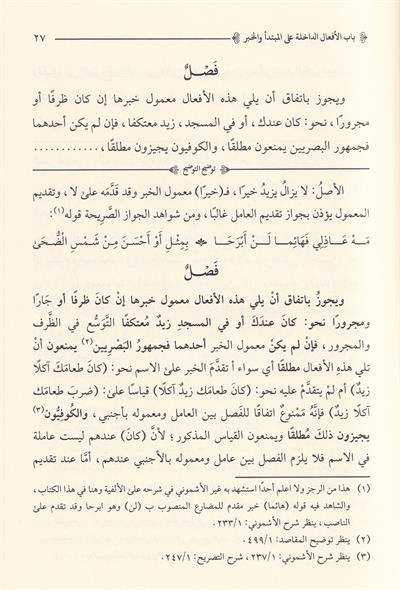 باب الأفعال الداخلة على المبتدأ والخبر ٢٧
فَصْلٌ
ويجوز باتفاق أن يلي هذه الأفعال معمول خبرها إن كان ظرفًا أو
مجرورًا، نحو: كان عندك، أو في المسجد، زيد معتكفا، فإن لم يكن أحدهما
فجمهور البصريين يمنعون مطلقًا، والكوفيون يجيزون مطلقًا، ............
توضيح التوضيح
الأصلُ: لا يزالُ يزيدُ خيرًا، فـ(خيرا) معمول الخبر وقد قدَّمه على لا، وتقديم
المعمول يؤذن بجواز تقديم العامل غالبًا، ومن شواهد الجواز الصَّريحة قوله(١):
مَهْ عَاذِلِي فَهَائِمًا لَنْ أَبْرَحَا بِمِثْلِ أَوْ أَحْسَنَ مِنْ شَمْسِ الضُّحَىٰ
فَصْلٌ
ويجوزُ باتفاق أنْ يلي هذه الأفعال معمول خبرها إنْ كانَ ظرفًا أو جَارًا
ومجرورًا نحو: كانَ عندَكَ أو في المسجدِ زيدٌ مُعتكفًا لتَّوَسُّع في الظَّرف
والمجرور، فإنْ لم يكنْ معمول الخبر أحدهما فجمهورُ البَصْريين(٢) يمنعون أنْ
تلي هذهِ الأفعال مطلقًا أي سواء أ تقدَّمَ الخبر على الاسم نحو: (كانَ طعامَكَ آكلًا
زيدٌ) أم لمْ يتقدَّمْ عليه نحو: (كانَ طعامَك زيدٌ آكلًا) قياسًا على: (ضربَ طعامَك
آكلًا زيدٌ) فإنَّهُ مَمْنوعٌ اتفاقًا للفَصل بين العامل ومعموله بأجنبي، والكُوفيُّون(٣)
يجيزون ذلكَ مُطلقًا ويمنعون القياس المذكور؛ لأنَّ (كانَ) عندهم ليست عاملة
في الاسم فلا يلزم الفصل بين عامل ومعموله بالأجنبي عندهم، أمَّا عند تقديم
(١) هذا من الرجز ولا اعلم أحدًا استشهد به غير الأشموني في شرحه على الألفية وهنا في هذا الكتاب،
والشاهد فيه قوله (هائما) خبر مقدم للمضارع المنصوب ب (لن) وهو ابرحا وقد تقدم على
الناصب، ينظر شرح الأشموني: ٢٣٣/١.
(٢) ينظر توضيح المقاصد: ٤٩٩/١.
(٣) ينظر شرح الأشموني: ٢٣٧/١، شرح التصريح: ٢٤٧/١.